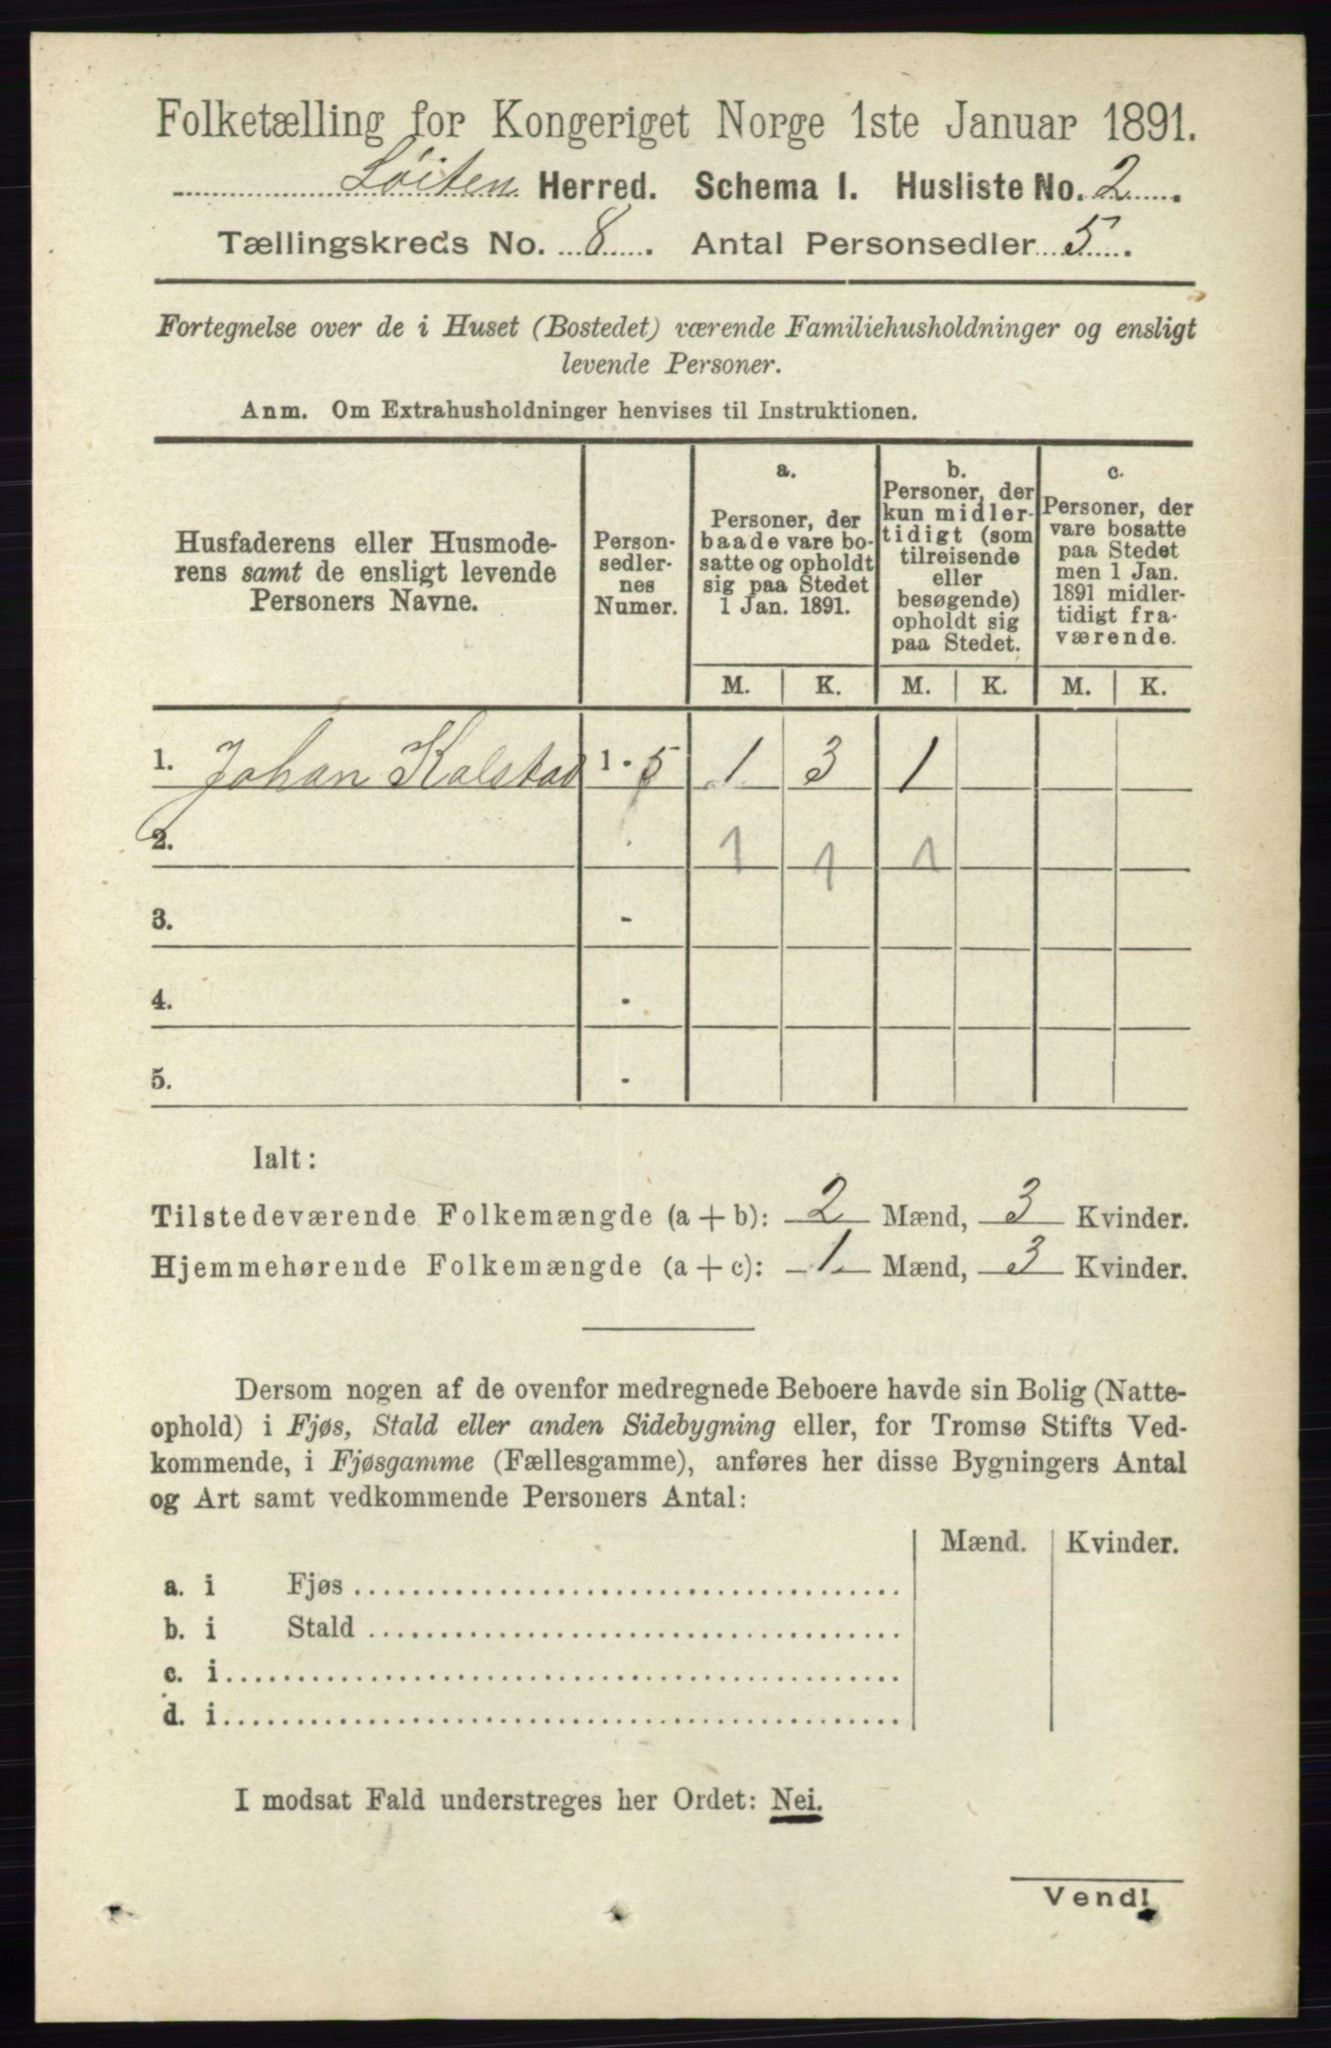 Folketælling for Kongeriget Norge 1ste Januar 1891.
Løiten Herred. Schema 1. Husliste No. 2.
Tællingskreds No. 8. Antal Personsedler 5.
Fortegnelse over de i Huset (Bostedet) værende Familiehusholdninger og ensligt
levende Personer.
Anm. Om Extrahusholdninger henvises til Instruktionen.
Husfaderens eller Husmode-
rens samt de ensligt levende
Personers Navne.
Person-
sedler-
nes
Numer.
a.
Personer, der
baade vare bo-
satte og opholdt
sig paa Stedet
1 Jan. 1891.
b.
Personer, der
kun midler-
tidigt (som
tilreisende
eller
besøgende)
opholdt sig
paa Stedet.
c.
Personer, der
vare bosatte
paa Stedet
men 1 Jan.
1891 midler-
tidigt fra-
værende.
M. K. M. K. M. K.
1. Johan Kalstad 1 - 5 1 3 1
2. - 1 1 1
3. -
4. -
5. -
Ialt:
Tilstedeværende Folkemængde (a + b): 2 Mænd, 3 Kvinder.
Hjemmehørende Folkemængde (a + c): 1 Mænd, 3 Kvinder.
Dersom nogen af de ovenfor medregnede Beboere havde sin Bolig (Natte-
ophold) i Fjøs, Stald eller anden Sidebygning eller, for Tromsø Stifts Ved-
kommende, i Fjøsgamme (Fællesgamme), anføres her disse Bygningers Antal
og Art samt vedkommende Personers Antal:
Mænd. Kvinder.
a. i Fjøs
b. i Stald
c. i
d. i
I modsat Fald understreges her Ordet: Nei.
Vend!